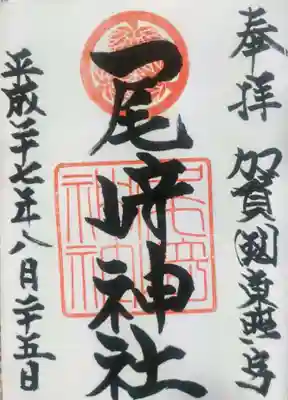 奉拝 加賀國東照宮
尾﨑神社
尾崎神社
平成二十七年八月二十五日